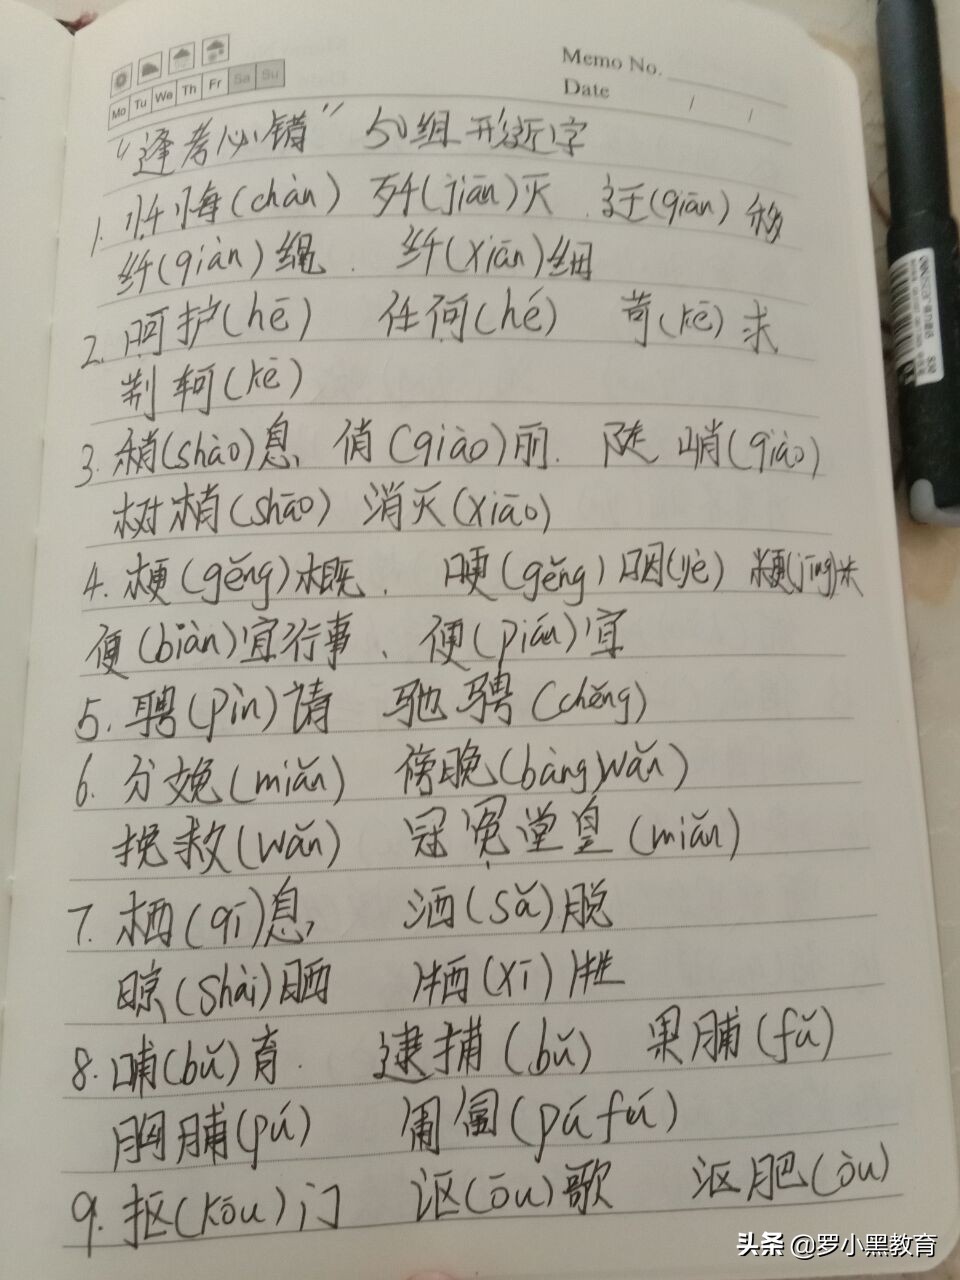 Memo No.
Mo Tu We Th Fr Sa Su
Date / /
“逢考必错” 50组形近字
1. 忏悔(chàn) 歼(jiān)灭 迁(qiān)移
纤(qiàn)绳 纤(xiān)细
2. 呵护(hē) 任何(hé) 苛(kē)求
荆轲(kē)
3. 稍(shào)息 俏(qiào)丽 陡峭(qiào)
树梢(shāo) 消灭(xiāo)
4. 梗(gěng)概 哽(gěng)咽(yè) 粳(jīng)米
便(biàn)宜行事 便(pián)宜
5. 聘(pìn)请 驰骋(chěng)
6. 分娩(miǎn) 傍晚(bàngwǎn)
挽救(wǎn) 冠冕堂皇(miǎn)
7. 栖(qī)息 洒(sǎ)脱
晾(shài)晒 牺(xī)牲
8. 哺(bǔ)育 逮捕(bǔ) 果脯(fǔ)
胸脯(pú) 匍匐(pú fú)
9. 抠(kōu)门 讴(ōu)歌 沤肥(òu)
头条 @罗小黑教育